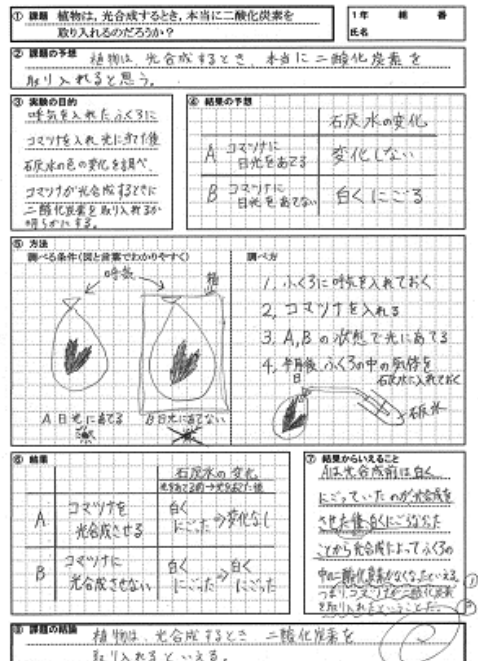 ① 課題 植物は，光合成するとき，本当に二酸化炭素を
取り入れるのだろうか？
1年 組 番
氏名
② 課題の予想 植物は、光合成するとき、本当に二酸化炭素を
取り入れると思う。
③ 実験の目的
呼気を入れたふくろに
コマツナを入れ光に当てた後
石灰水の色の変化を調べ、
コマツナが光合成するときに
二酸化炭素を取り入れるか
明らかにする。
④ 結果の予想
石灰水の変化
A コマツナに
日光をあてる
変化しない
B コマツナに
日光をあてない
白くにごる
⑤ 方法
調べる条件(図と言葉でわかりやすく)
呼気
箱
A 日光にあてる
B 日光にあてない
調べ方
1, ふくろに呼気を入れておく
2, コマツナを入れる
3, A,Bの状態で光にあてる
4, 半日後、ふくろの中の気体を
石灰水に入れておく
石灰水
⑥ 結果
石灰水の変化
光をあてる前→光をあてた後
A コマツナを
光合成させる
白く
にごった⇒変化なし
B コマツナに
光合成させない
白く
にごった⇒白く
にごった
⑦ 結果からいえること
Aは光合成前は白く
にごっていたのが光合成を
させた後白くにごらなかった
ことから光合成によってふくろの
中の二酸化炭素がなくなったといえる。
つまりコマツナが二酸化炭素
を取り入れたということだ。
⑧ 課題の結論 植物は、光合成するとき 二酸化炭素を
取り入れるといえる。